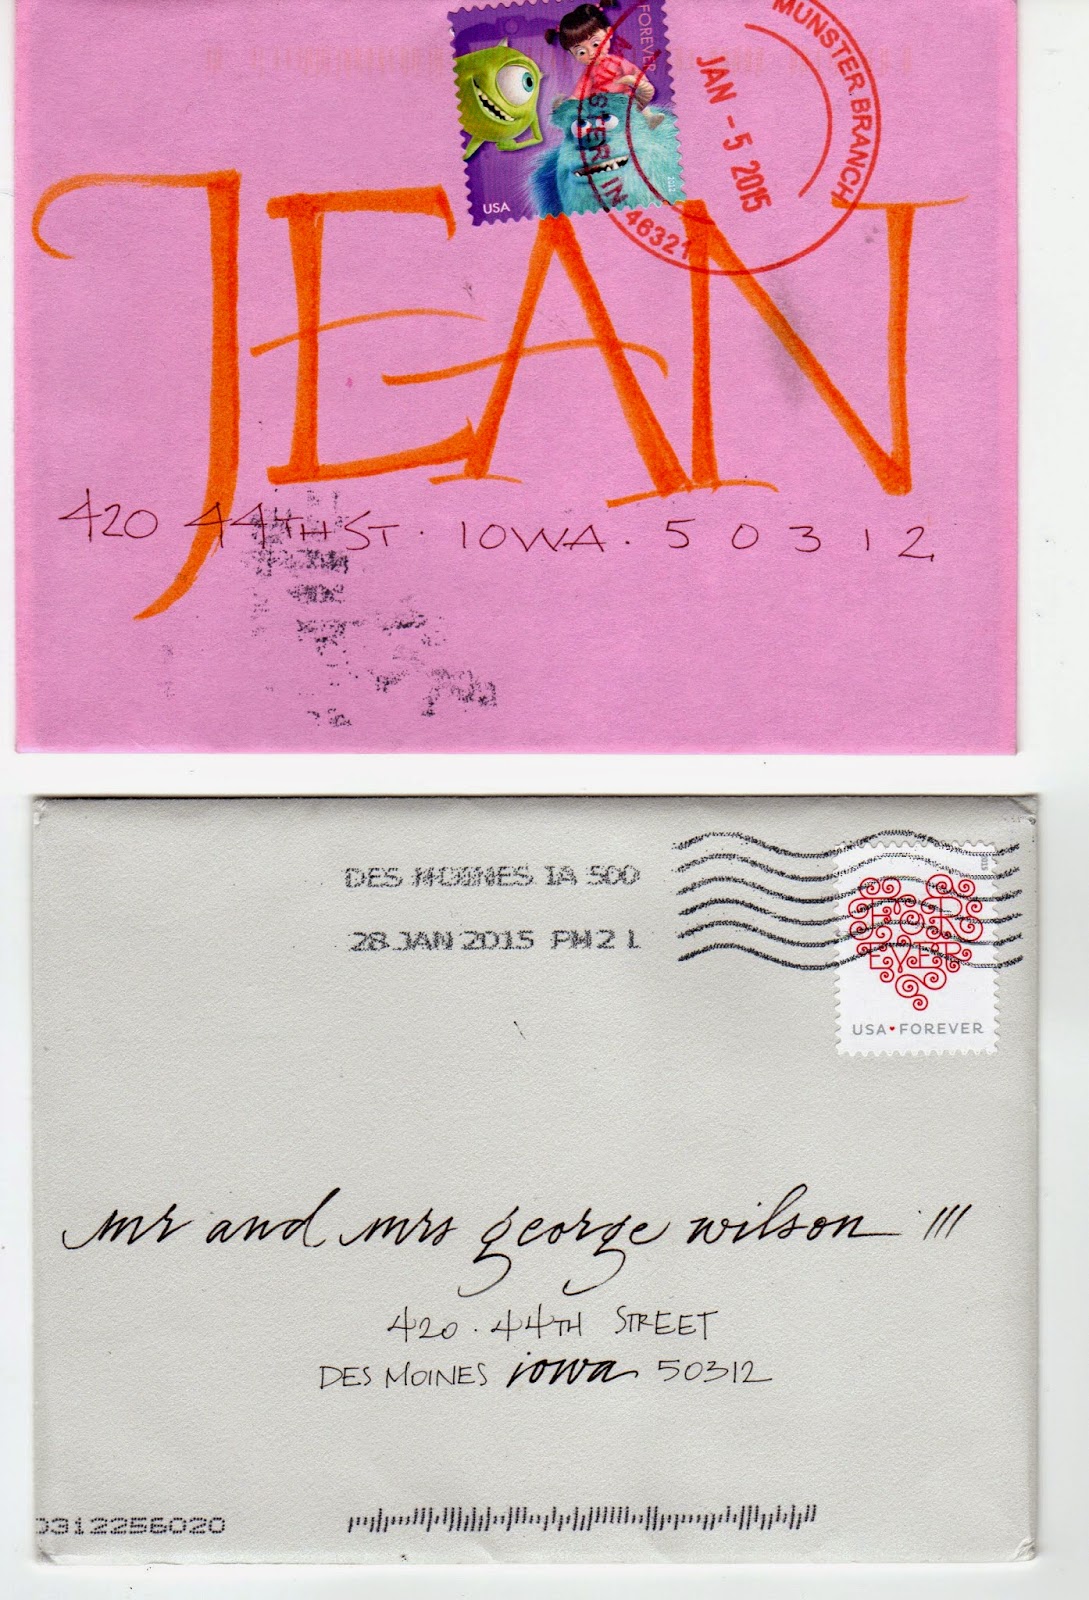 FOREVER
USA
2012
MUNSTER BRANCH
JAN - 5 2015
MUNSTER IN 46321
JEAN
420 44TH ST · IOWA · 50312
DES MOINES IA 500
28 JAN 2015 PM 2 L
FOR
EVER
USA FOREVER
mr and mrs george wilson III
420 · 44TH STREET
DES MOINES iowa 50312
0312256020